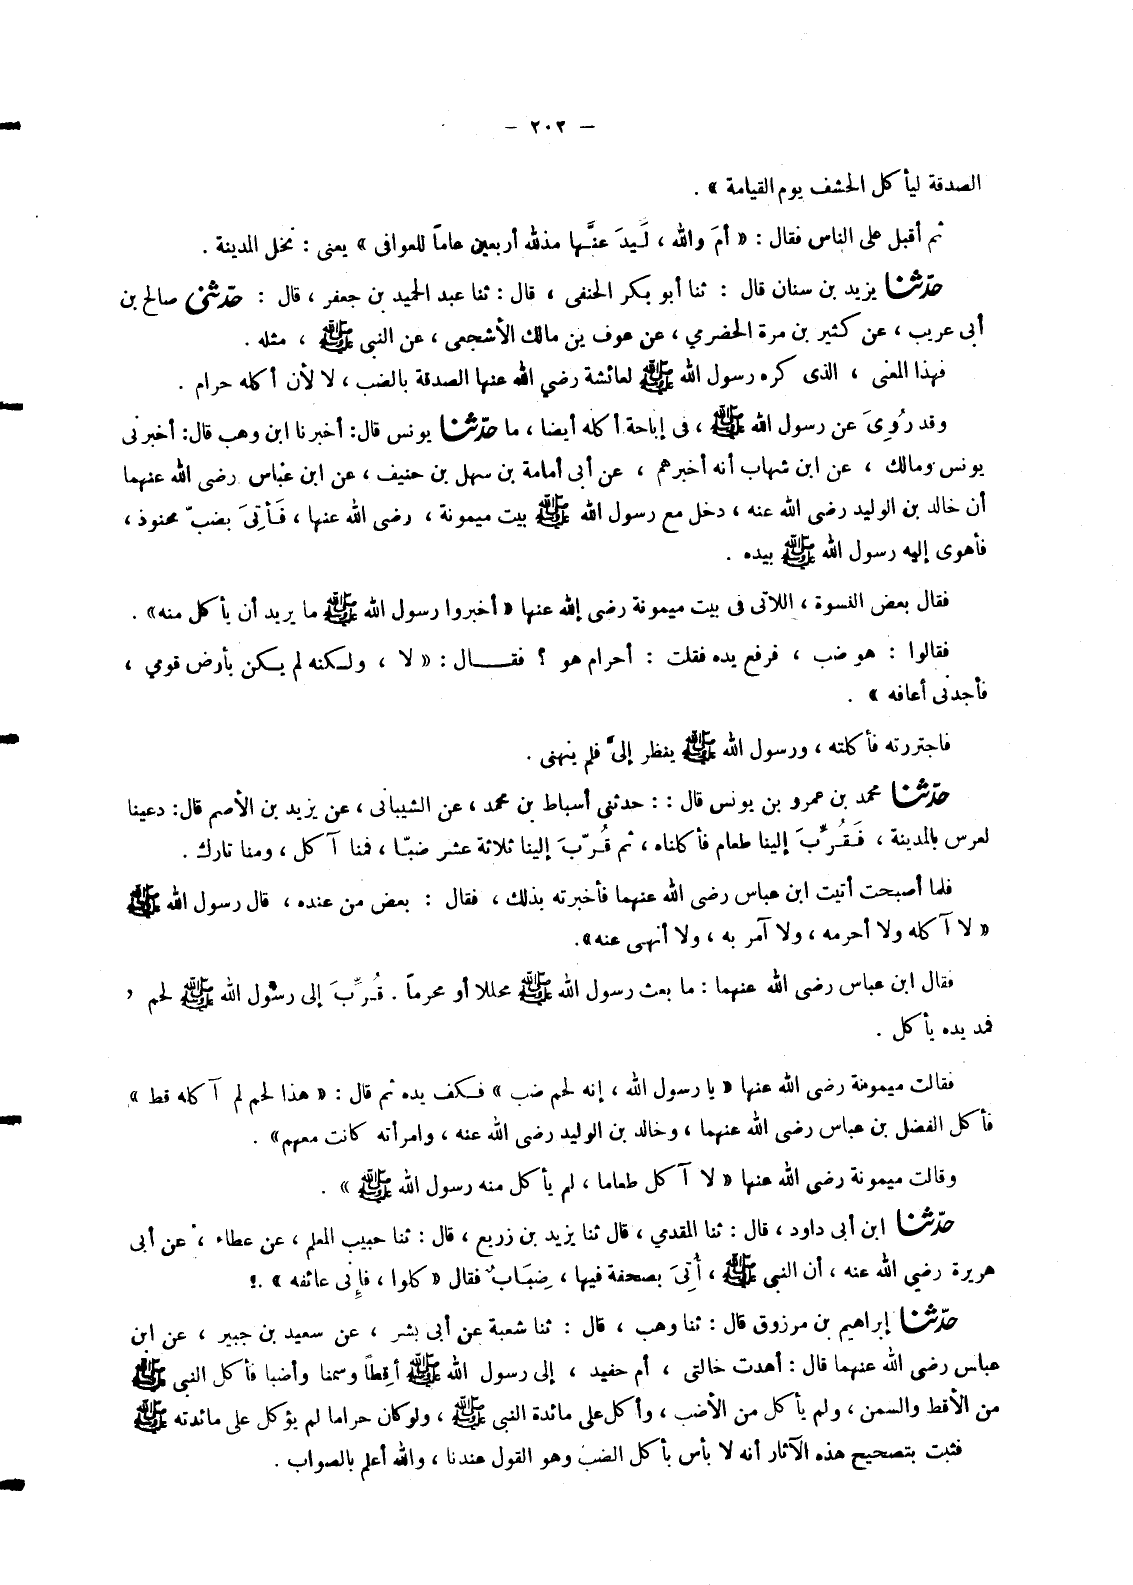 — ٢٠٢ —
الصدقة ليأكل الحشف يوم القيامة » .
ثم أقبل على الناس فقال : « أمَ والله ، لَيدَ عنَّها مذللة أربعين عاماً للعوافى » يعنى : نخل المدينة .
حدّثنا يزيد بن سنان قال : ثنا أبو بكر الحنفى ، قال : ثنا عبد الحميد بن جعفر ، قال : حدّثنى صالح بن
أبى عريب ، عن كثير بن مرة الحضرمي ، عن عوف بن مالك الأشجعى ، عن النبى ﷺ ، مثله .
فهذا المعنى ، الذى كره رسول الله ﷺ لعائشة رضي الله عنها الصدقة بالضب ، لا لأن أكله حرام .
وقد رُوِىَ عن رسول الله ﷺ ، فى إباحة أكله أيضا ، ما حدّثنا يونس قال: أخبرنا ابن وهب قال: أخبرنى
يونس ومالك ، عن ابن شهاب أنه أخبرهم ، عن أبى أمامة بن سهل بن حنيف ، عن ابن عباس رضى الله عنهما
أن خالد بن الوليد رضى الله عنه ، دخل مع رسول الله ﷺ بيت ميمونة ، رضى الله عنها ، فَأُتِىَ بضبّ محنوذ ،
فأهوى إليه رسول الله ﷺ بيده .
فقال بعض النسوة ، اللاتى فى بيت ميمونة رضى الله عنها « أخبروا رسول الله ﷺ ما يريد أن يأكل منه» .
فقالوا : هو ضب ، فرفع يده فقلت : أحرام هو ؟ فقــال : « لا ، ولكنه لم يكن بأرض قومي ،
فأجدنى أعافه » .
فاجتررته فأكلته ، ورسول الله ﷺ ينظر إلىَّ فلم ينهنى .
حدّثنا محمد بن عمرو بن يونس قال : : حدثنى أسباط بن محمد ، عن الشيبانى ، عن يزيد بن الأصم قال: دعينا
لعرس بالمدينة ، فَقُرِّبَ إلينا طعام فأكلناه ، ثم قُرّبَ إلينا ثلاثة عشر ضبّا ، فمنا آكل ، ومنا تارك .
فلما أصبحت أتيت ابن عباس رضى الله عنهما فأخبرته بذلك ، فقال : بعض من عنده ، قال رسول الله ﷺ
« لا آكله ولا أحرمه ، ولا آمر به ، ولا أنهى عنه».
فقال ابن عباس رضى الله عنهما : ما بعث رسول الله ﷺ محللا أو محرماً . قُرِّبَ إلى رسول الله ﷺ لحم ,
فمد يده يأكل .
فقالت ميمونة رضى الله عنها « يا رسول الله ، إنه لحم ضب » فكف يده ثم قال : « هذا لحم لم آكله قط »
فأكل الفضل بن عباس رضى الله عنهما ، وخالد بن الوليد رضى الله عنه ، وامرأته كانت معهم» .
وقالت ميمونة رضى الله عنها « لا آكل طعاما ، لم يأكل منه رسول الله ﷺ » .
حدّثنا ابن أبى داود ، قال : ثنا المقدمي ، قال ثنا يزيد بن زريع ، قال : ثنا حبيب المعلم ، عن عطاء ، عن أبى
هريرة رضي الله عنه ، أن النبي ﷺ ، أُتِىَ بصحفة فيها ، ضِبَابٌ فقال « كلوا ، فإنى عائفه » .
حدّثنا إبراهيم بن مرزوق قال : ثنا وهب ، قال : ثنا شعبة عن أبى بشر ، عن سعيد بن جبير ، عن ابن
عباس رضى الله عنهما قال : أهدت خالتى ، أم حفيد ، إلى رسول الله ﷺ أقِطاً وسمنا وأضبا فأكل النبى ﷺ
من الأقط والسمن ، ولم يأكل من الأضب ، وأكل على مائدة النبى ﷺ ، ولوكان حراما لم يؤكل على مائدته ﷺ
فثبت بتصحيح هذه الآثار أنه لا بأس بأكل الضب وهو القول عندنا ، والله أعلم بالصواب .